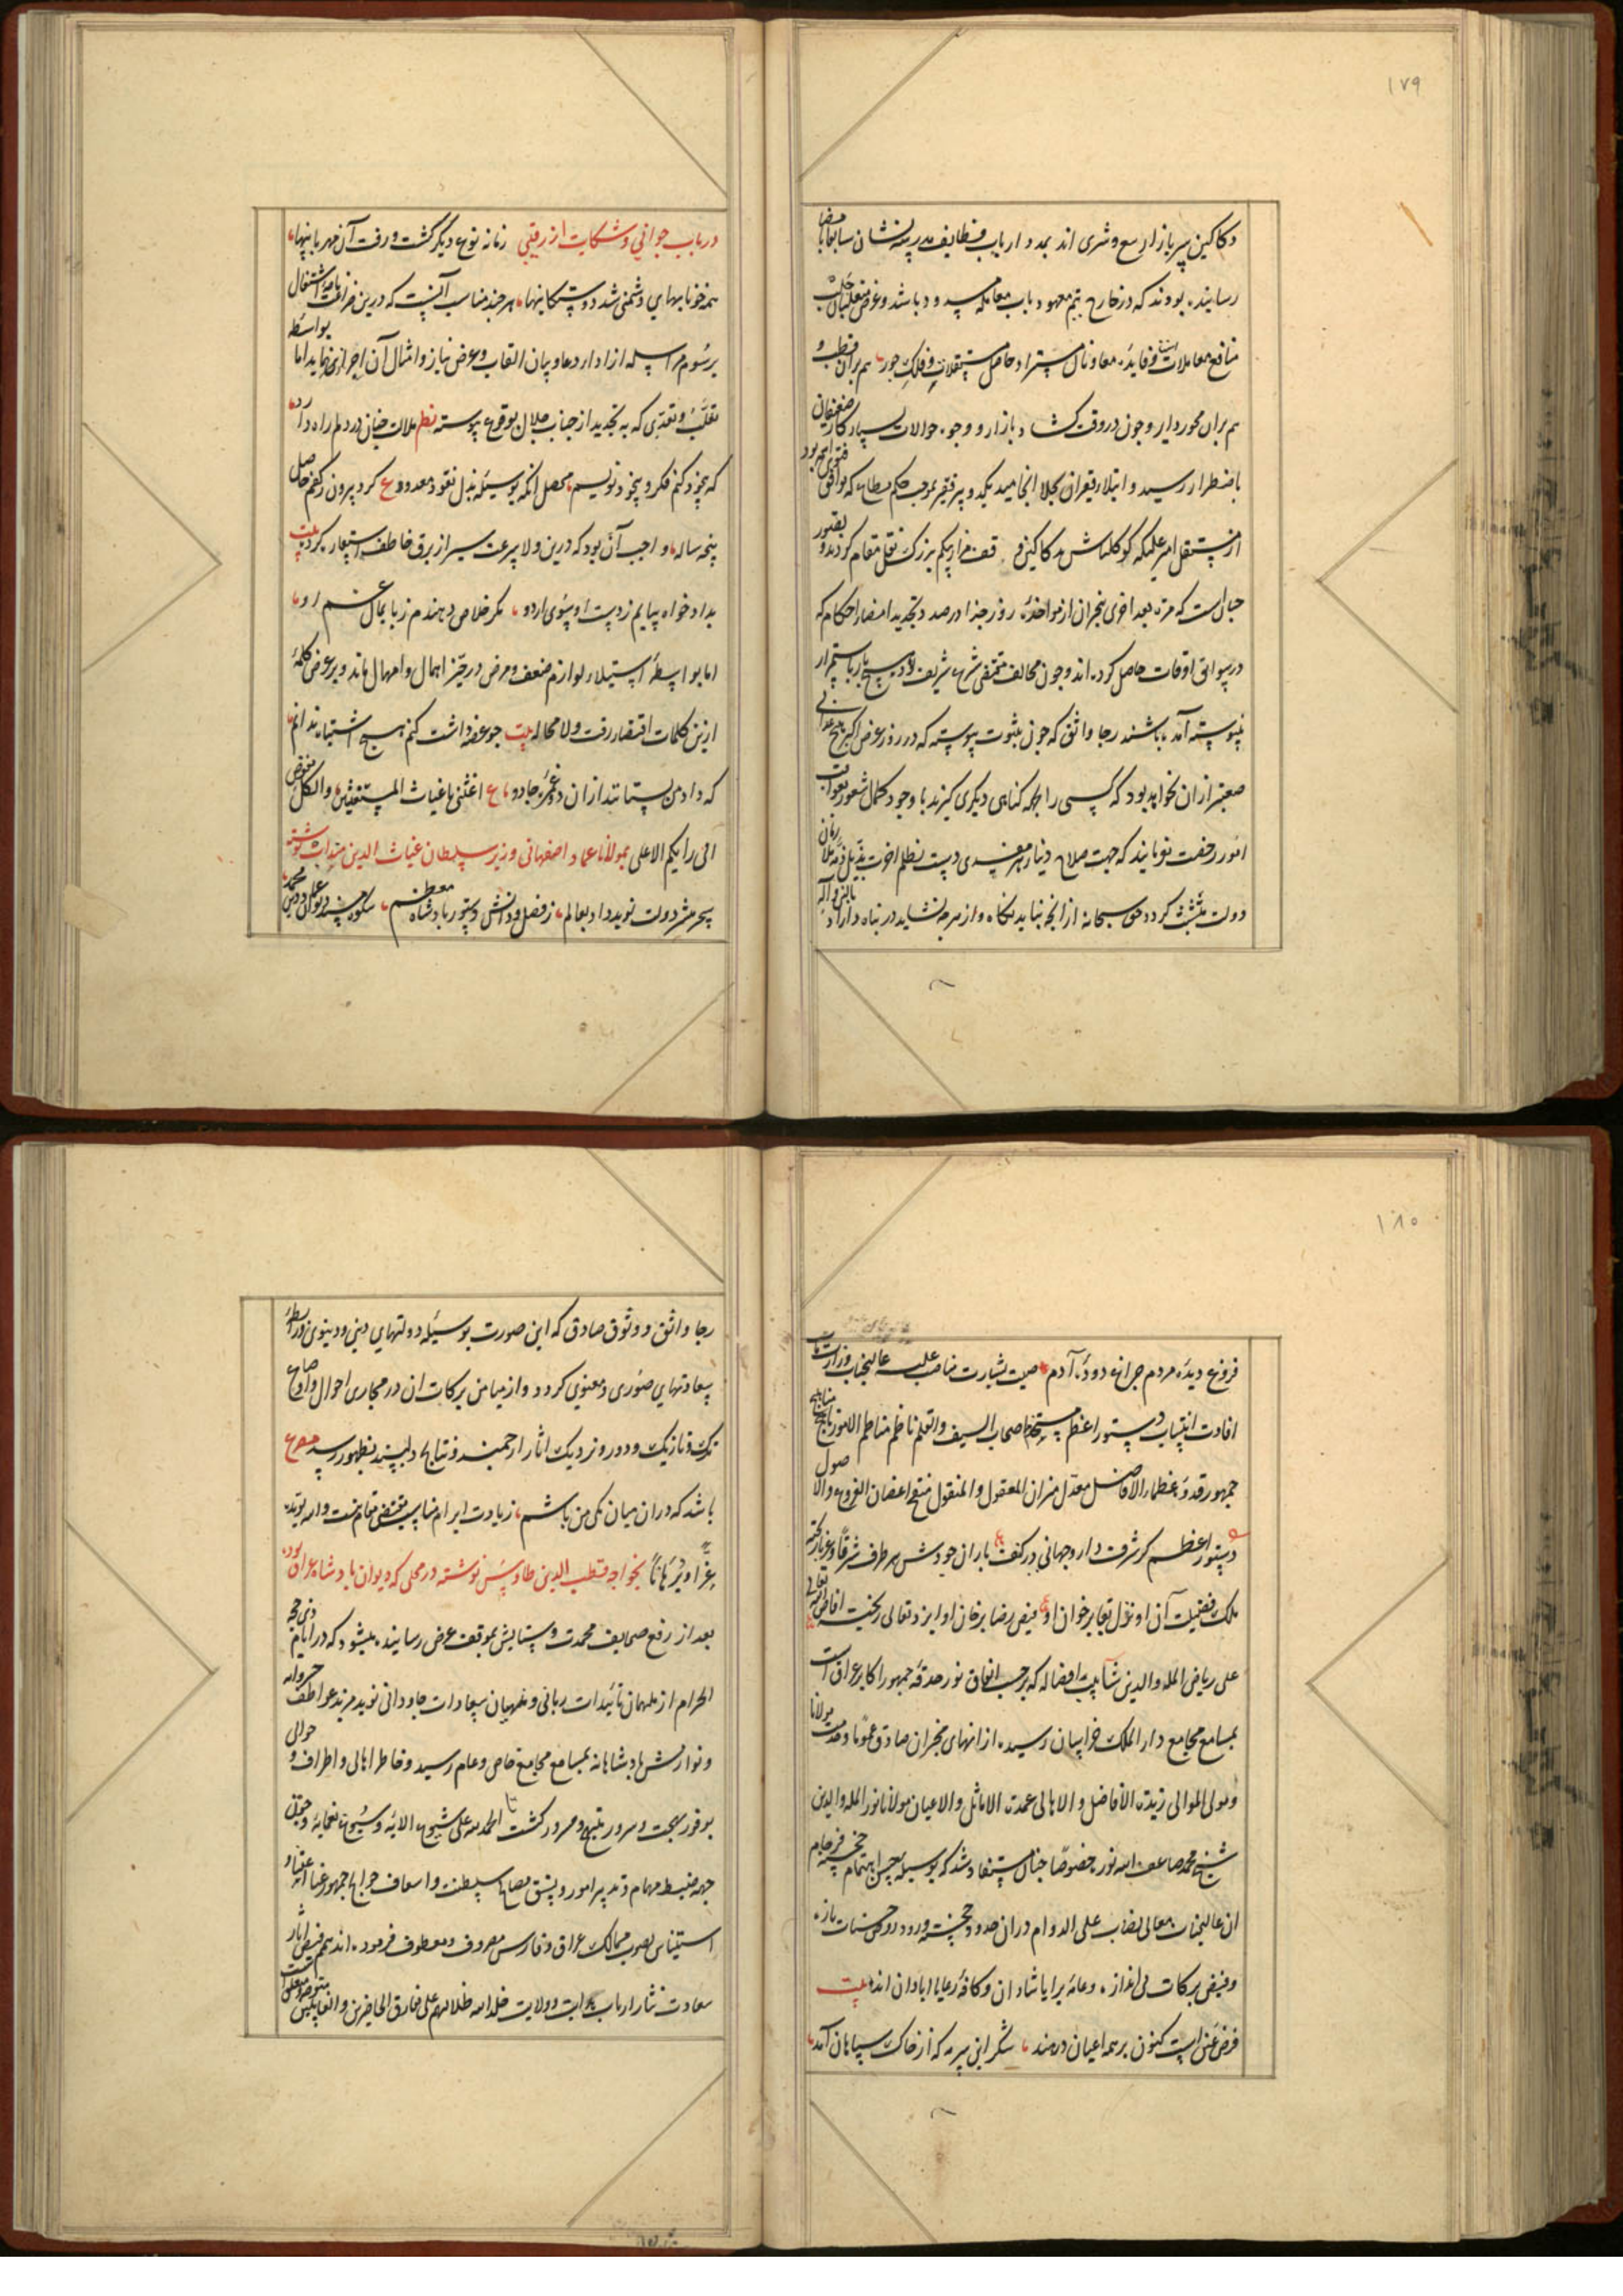 ١٧٩
دکاکین سر بازار بیع و شری اند بمدد ارباب وظایف مدرسه نشان سابقا
رسانیده بودند که در خارج تیم معهود باب معامله مسدود باشد و غرض
منافع معاملات و فایده معاونان مستزاد حاصل مستقلات و فلک جور هم بران
هم بران محور دایر و چون در وقت کشاد بازار و وجوه حوالات بسیار کار ضعیفان
باضطرار رسید و ابتلاء فقیران بجلا انجامید یکدو پیر فقیر بموجب حکم مطاع که
از مستقل امیر علیکه کوکلتاش بدکاکین نقل مقام کردند و
چنان است که مرة بعد اخری از مواخذه روز جزا در صدد تجدید امضاء احکام که
در سوابق اوقات حاصل کرده اند و چون مخالف مقتضی شرع شریف
نپیوسته آمده باشند رجا واثق که چون بثبوت پیوسته که در روز عرض اکبر هیچ
صعبتر ازان نخواهد بود که کسی را بجهة کناهی دیکری کیرند با وجود کمال شعور بعواقب
امور رخصت نفرمایند که جهت صلاح دنیاء هر مفسدی دست تظلم اخرت بذیل
دولت متشبث کردد حق سبحانه از انچه نباید نکاه و از هر چه نشاید در پناه داراد بالنبی و آله
در باب جوانی و شکایت از رقیبی زمانه نوع دیکر کشت و رفت آن مهربانیها
همه خونابهای دشمنی شد دوستکانیها هر چند مناسب آنست که درین ضراعت نامه اشتغال
برسوم مراسله از ادا دعا و بیان القاب و عرض نیاز و امثال آن احتراز نماید اما بواسطه
تغلب و تعدی که بتجدید از جناب جلال بوقوع پیوسته نظم ملالت چنان در دلم راه داد
که بخود کنم فکر و بخود نویسم محصل انکه بوسیله بذل نقود معدود ع کرد بیرون ز کفم حاصل
پنجه ساله و واجب آن بود که درین ولا سرعت سیر از برق خاطف استعاره کرده بیت
بدادخواه بیایم ز دست او بسوی اردو مکر خلاص دهندم ز پایمال غم او
اما بواسطه استیلاء لوازم ضعف و مرض در حیز اهمال و امهال ماند و بر عرض کلمه
ازین کلمات اقتصار رفت ولا محاله بیت چو عرضه داشت کنم هیچ اشتباه ندانم
که داد من بستانند ازان دو غمزه جادو ع اغثنی یا غیاث المستغیثین والکل مفوض
الی رایکم الاعلی بمولانا عماد اصفهانی وزیر سلطان غیاث الدین نوشته
سحر مبشر دولت نوید داد بعالم ز فضل و دانش دستور بادشاه معظم
١٨٠
فروغ دیده مردم چراغ دوده آدم صیت بشارت مناصب علیه عالیجناب وزارت مآب
افادت انتساب دستور اعظم مستخدم اصحاب السیف والقلم ناظم مناظم الامور ناهج مناهج
جمهور قدوه عظماء الافاضل معدل میزان المعقول والمنقول منتج اغصان الفروع والاصول
دستور اعظم کز شرف دارد جهانی در کنف باران جودش هر طرف شرقا و غربا ریخته
ملک فضیلت آن او نزل بقا بر خوان او فیض رضا بر جان او ایزد تعالی ریخته افاض الله تعالی
علی ریاض المله والدین شآبیب افضاله که بر حسب اتفاق نور حدقه جمهور اکابر عراق است
بمسامع مجامع دار الملک خراسان رسید از انهاء مخبران صادق عموما و خدمت مولانا
ومولی الموالی زبدة الافاضل والاهالی عمدة الاماثل والاعیان مولانا نور المله والدین
شیخ محمد ضاعف الله نوره خصوصا چنان مستفاد شد که بوسیله حسن اهتمام خجسته فرجام
ان عالیجناب معالی نصاب علی الدوام دران حدود خجسته ورود روح حسنات تازه
و فیض برکات بی اندازه و عامه برایا شادان و کافه رعایا ابادان اند بیت
فرض عین است کنون بر همه اعیان در هند شکر این سرمه که از خاک سپاهان آمد
رجا واثق و وثوق صادق که این صورت بوسیله دولتهای دینی و دنیوی و رابطه
سعادتهای صوری و معنوی کردد و از میامن برکات ان در مجاری احوال و اوضاع
ترک و تازیک و دور و نزدیک اثار ارجمند و نتایج دلپسند بظهور رسد مصرع
باشد که دران میان یکی من باشم زیادت ابرام مناسب مقتضی مقام نیست والله یؤتیه
عزا و برهانا بخواجه قطب الدین طاوس نوشته در محلی که دیوان بادشاه عراق بود
بعد از رفع صحایف محمدت و ستایش بموقف عرض رسانیده میشود که در ایام ذی حجه
الحرام از ملهمان تائیدات ربانی و منهیان سعادات جاودانی نوید مزید عواطف خسروانه
و نوازش بادشاهانه بمسامع مجامع خاص و عام رسید و خاطر اهالی و اطراف و حوالی
بوفور بهجت و سرور مبتهج و مسرور کشت الحمد لله علی شیوع الائه و سبوغ نعمائه و چون
جهه ضبط مهام و تدبیر امور و نسق مصالح سلطنت و اسعاف حوایج جمهور
استیناس بصوب ممالک عراق و فارس مصروف و معطوف فرموده اند همم فیض اثار
سعادت نثار ارباب هدایت و ولایت خلد الله ظلالهم علی مفارق الحاضرین و الغایبین